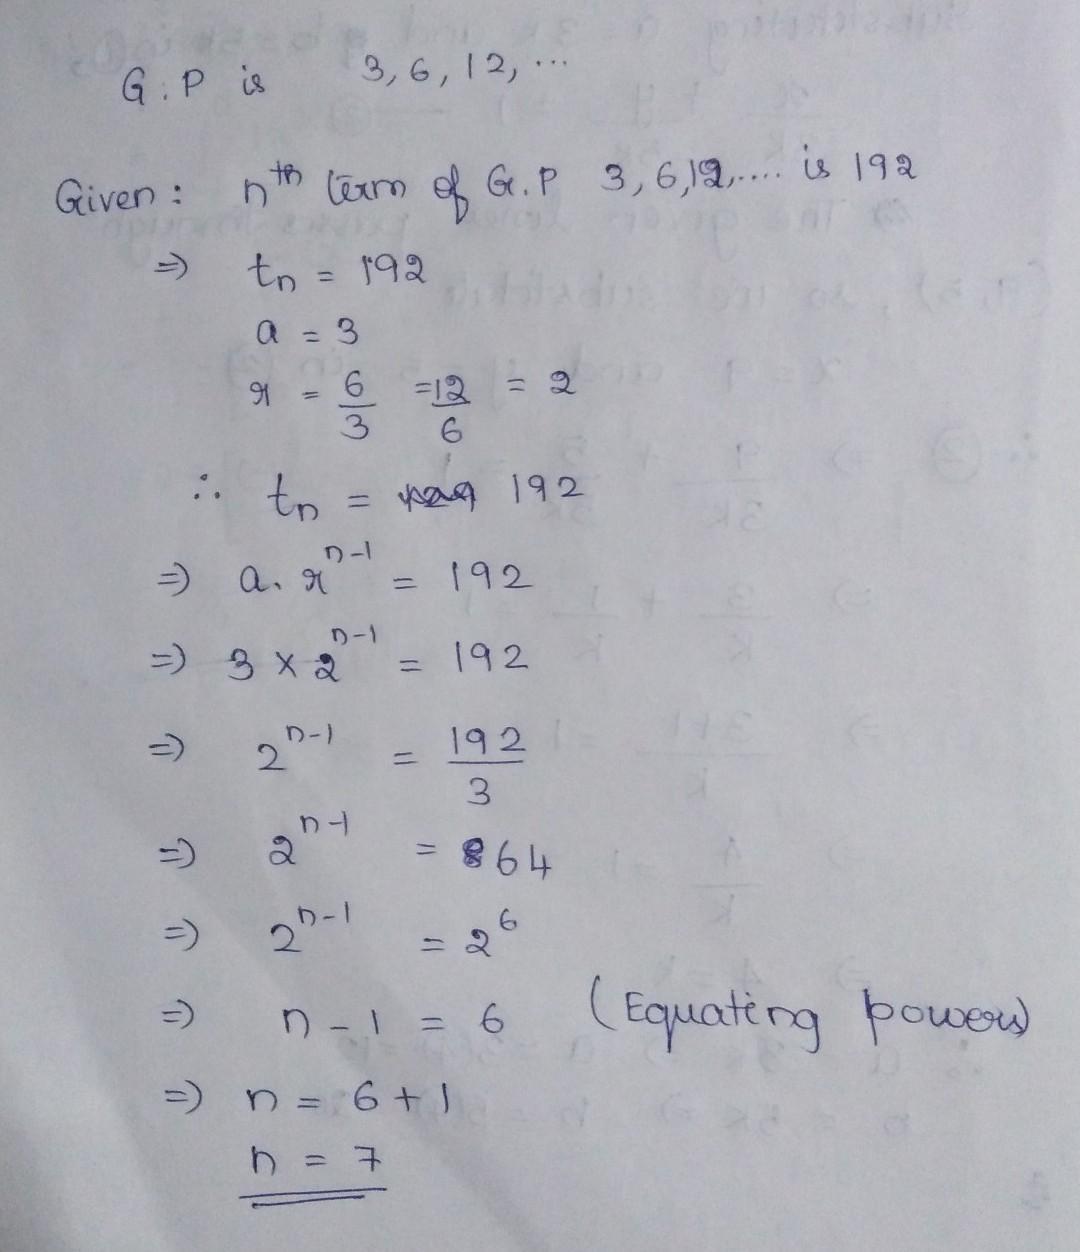 G.P is 3, 6, 12, ...
Given : nth term of G.P 3, 6, 12, .... is 192
⇒ tn = 192
a = 3
r = 6/3 = 12/6 = 2
∴ tn = 192
⇒ a. r^n-1 = 192
⇒ 3 × 2^n-1 = 192
⇒ 2^n-1 = 192/3
⇒ 2^n-1 = 64
⇒ 2^n-1 = 2^6
⇒ n - 1 = 6 (Equating powers)
⇒ n = 6 + 1
n = 7